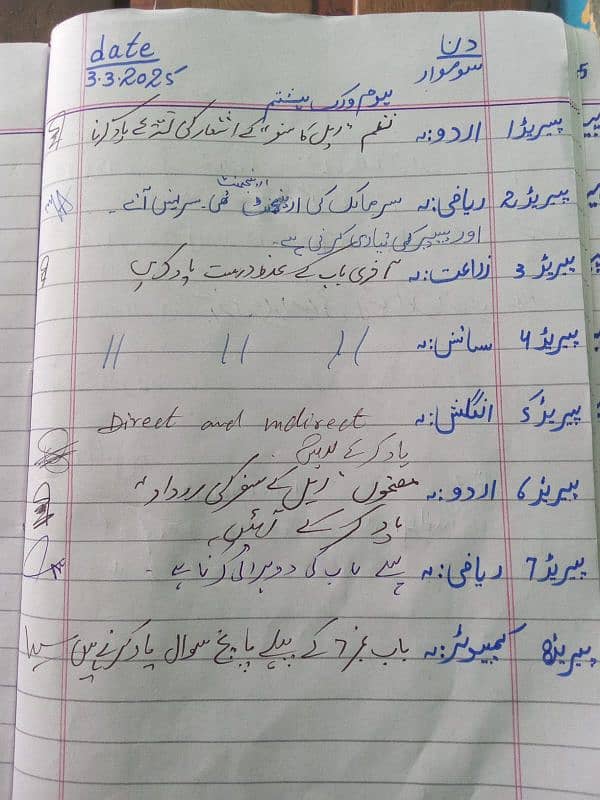 date دن
3.3.2025 سوموار
ہوم ورک ہشتم
پیریڈ 1 اردو:۔ نظم "ریل کا سفر" کے اشعار کی تشریح یاد کرنا
ارینجمنٹ
پیریڈ 2 ریاضی:۔ سر مالک کی تھی۔ سر نہیں آئے۔
اور پیپر کی تیاری کرنی ہے۔
پیریڈ 3 زراعت:۔ آخری باب کے غلط درست یاد کریں
پیریڈ 4 سائنس:۔ // // //
پیریڈ 5 انگلش:۔ Direct and Indirect
یاد کر کے
پیریڈ 6 اردو:۔ مضمون "ریل کے سفر کی روداد"
یاد کر کے آئیں۔
پیریڈ 7 ریاضی:۔ باب کی دوہرائی کرنا ہے۔
پیریڈ 8 کمپیوٹر:۔ باب نمبر 6 کے پہلے پانچ سوال یاد کرنے ہیں